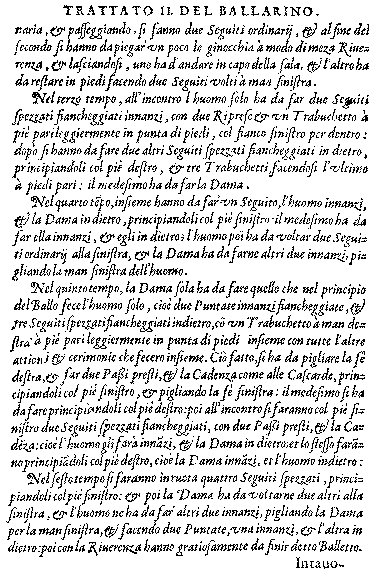 TRATTATO II. DEL BALLARINO.
naria, & passeggiando, si fanno due Seguiti ordinarij, & al fine del
secondo si hanno da piegar vn poco le ginocchia à modo di meza Riue-
renza, & lasciandosi, uno ha d'andare in capo della sala, & l'altro ha
da restare in piedi facendo due Seguiti volti à man sinistra.
Nel terzo tempo, all'incontro l'huomo solo ha da far due Seguiti
spezzati fiancheggiati innanzi, con due Riprese & vn Trabuchetto à
piè pari leggiermente in punta di piedi, col fianco sinistro per dentro:
dopò si hanno da fare due altri Seguiti spezzati fiancheggiati in dietro,
principiandoli col piè destro, & tre Trabuchetti facendosi l'vltimo
à piedi pari: il medesimo ha da far la Dama.
Nel quarto tẽpo, insieme hanno da far vn Seguito, l'huomo innanzi,
& la Dama in dietro, principiandoli col piè sinistro: il medesimo ha da
far ella innanzi, & egli in dietro: l'huomo poi ha da voltar due Segui-
ti ordinarij alla sinistra, & la Dama ha da farne altri due innanzi, pi-
gliando la man sinistra dell'huomo.
Nel quinto tempo, la Dama sola ha da fare quelle che nel principio
del Ballo fece l'huomo solo, cioè due Puntate innanzi fiancheggiate, &
tre Seguiti spezzati fiancheggiati indietro, cõ vn Trabuchetto à man de-
stra à piè pari leggiermente in punta di piedi insieme con tutte l'altre
attioni & cerimonie che fecero insieme. Ciò fatto, si ha da pigliare la fè
destra, & far due Passi presti, & la Cadenza come alle Cascarde, prin-
cipiandoli col piè sinistro, & pigliando la fè sinistra: il medesimo si ha
da fare principiandoli col piè destro: poi all'incontro si faranno col piè si-
nistro due Seguiti spezzati fiancheggiati, con due Passi presti, & la Ca-
dẽza: cioè l'huomo gli farà innãzi, & la Dama in dietro: et lo stesso farã-
no principiãdoli col piè destro, cioè la Dama innãzi, et l'huomo indietro:
Nel sesto tempo si faranno in ruota quattro Seguiti spezzati, princi-
piandoli col piè sinistro: & poi la Dama ha da voltarne due altri alla
sinistra, & l'huomo ne ha da far due altri innanzi, pigliando la Dama
per la man sinistra, & facendo due Puntate, vna innanzi, & l'altra in
dietro: poi con la Riuerenza hanno gratiosamente da finir detto Balletto.
Intauo-